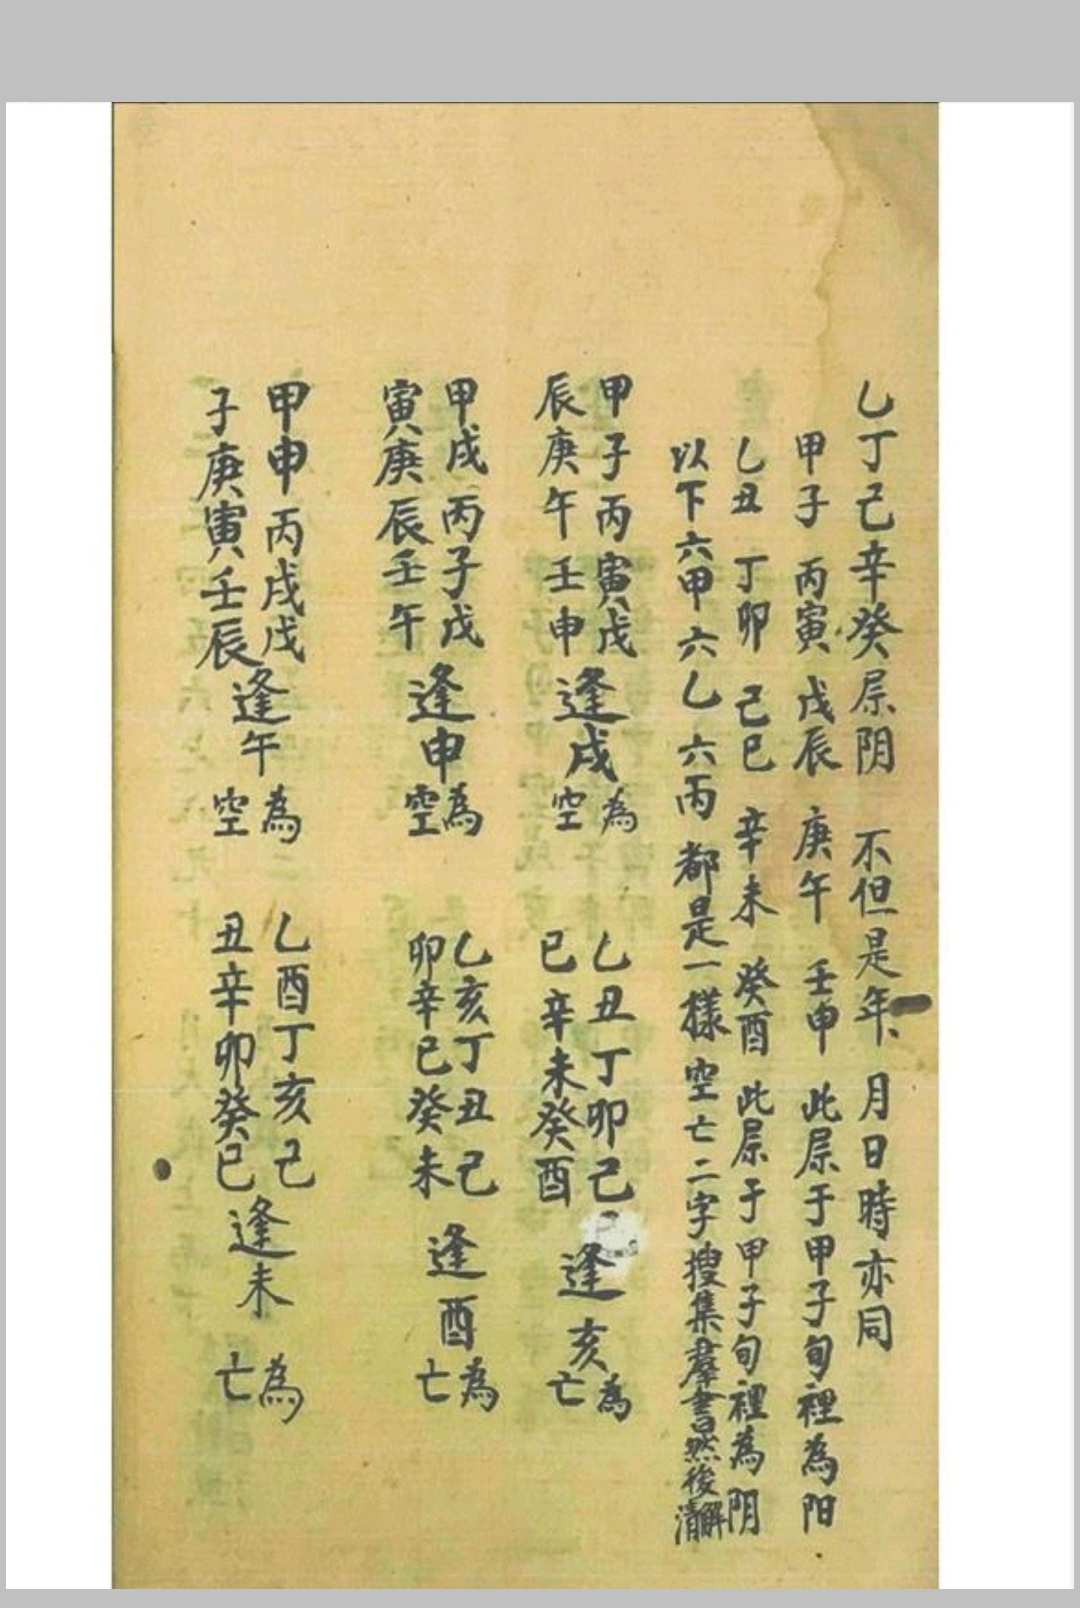 乙丁己辛癸屃阴 不但是年、月日時亦同
甲子 丙寅 戊辰 庚午 壬申 此屃于甲子旬裡為阳
乙丑 丁卯 己巳 辛未 癸酉 此屃于甲子旬裡為阴
以下六甲六乙六丙都是一樣空亡二字搜集羣書然後清解
甲子丙寅戊
辰庚午壬申
逢戌
為
空
乙丑丁卯己
巳辛未癸酉
逢亥
為
亡
甲戌丙子戊
寅庚辰壬午
逢申
為
空
乙亥丁丑己
卯辛巳癸未
逢酉
為
亡
甲申丙戌戊
子庚寅壬辰
逢午
為
空
乙酉丁亥己
丑辛卯癸巳
逢未
為
亡